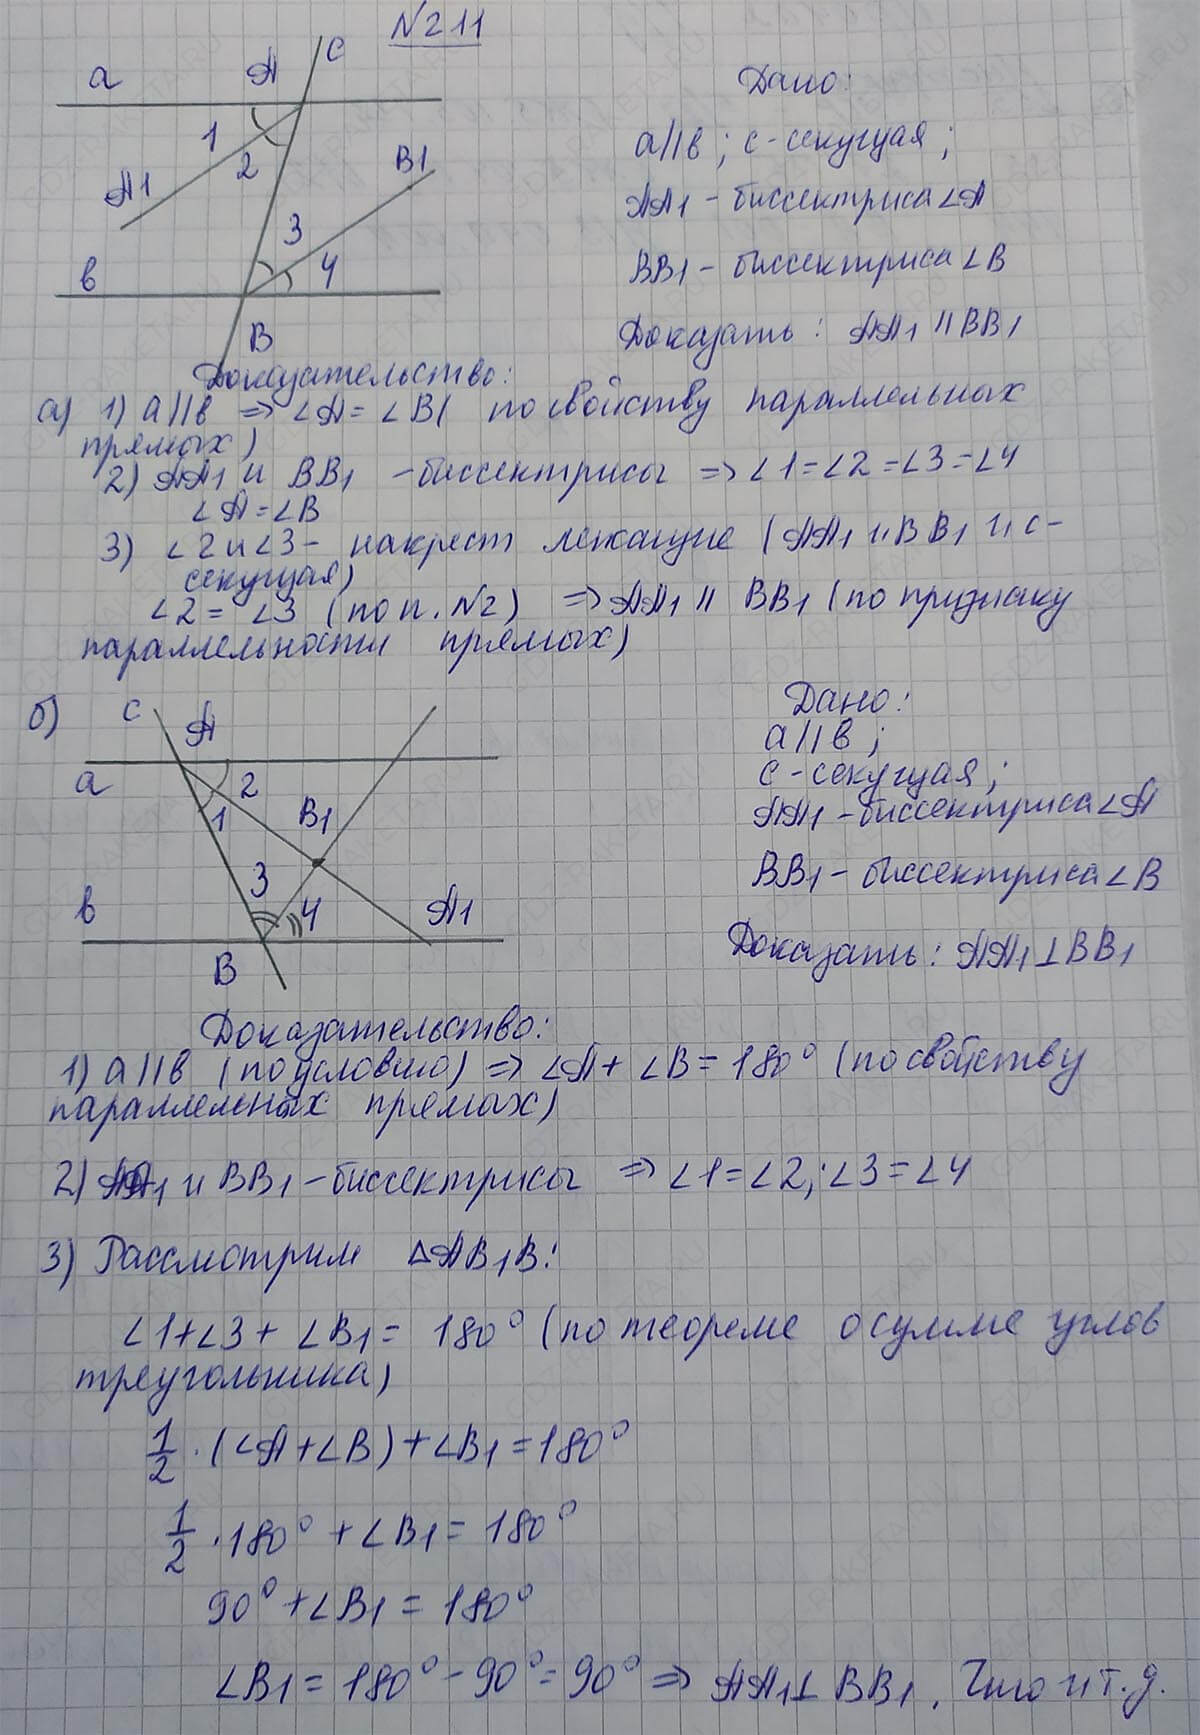 N211
C
a
A
1
2
A1
B1
3
4
в
B
Дано:
a||в ; c-секущая ;
AA1 - биссектриса ∠A
BB1 - биссектриса ∠B
Доказать : AA1 || BB1
Доказательство:
а) 1) a||в => ∠A = ∠B ( по свойству параллельных
прямых )
2) AA1 и BB1 - биссектрисы => ∠1=∠2=∠3=∠4
∠A=∠B
3) ∠2 и ∠3 - накрест лежащие ( AA1 и BB1 и c-
секущая )
∠2 = ∠3 ( по п. N2 ) => AA1 || BB1 ( по признаку
параллельности прямых )
б)
C
A
a
2
1
B1
3
4
в
A1
B
Дано:
a||в ;
c-секущая ;
AA1 - биссектриса ∠A
BB1 - биссектриса ∠B
Доказать : AA1 ⊥ BB1
Доказательство:
1) a||в ( по условию ) => ∠A + ∠B = 180° ( по свойству
параллельных прямых )
2) AA1 и BB1 - биссектрисы => ∠1=∠2; ∠3=∠4
3) Рассмотрим △AB1B:
∠1+∠3+ ∠B1 = 180° ( по теореме о сумме углов
треугольника )
1/2 · (∠A+∠B)+∠B1=180°
1/2 · 180° + ∠B1 = 180°
90° + ∠B1 = 180°
∠B1 = 180° - 90° = 90° => AA1 ⊥ BB1 . Что и т. д.